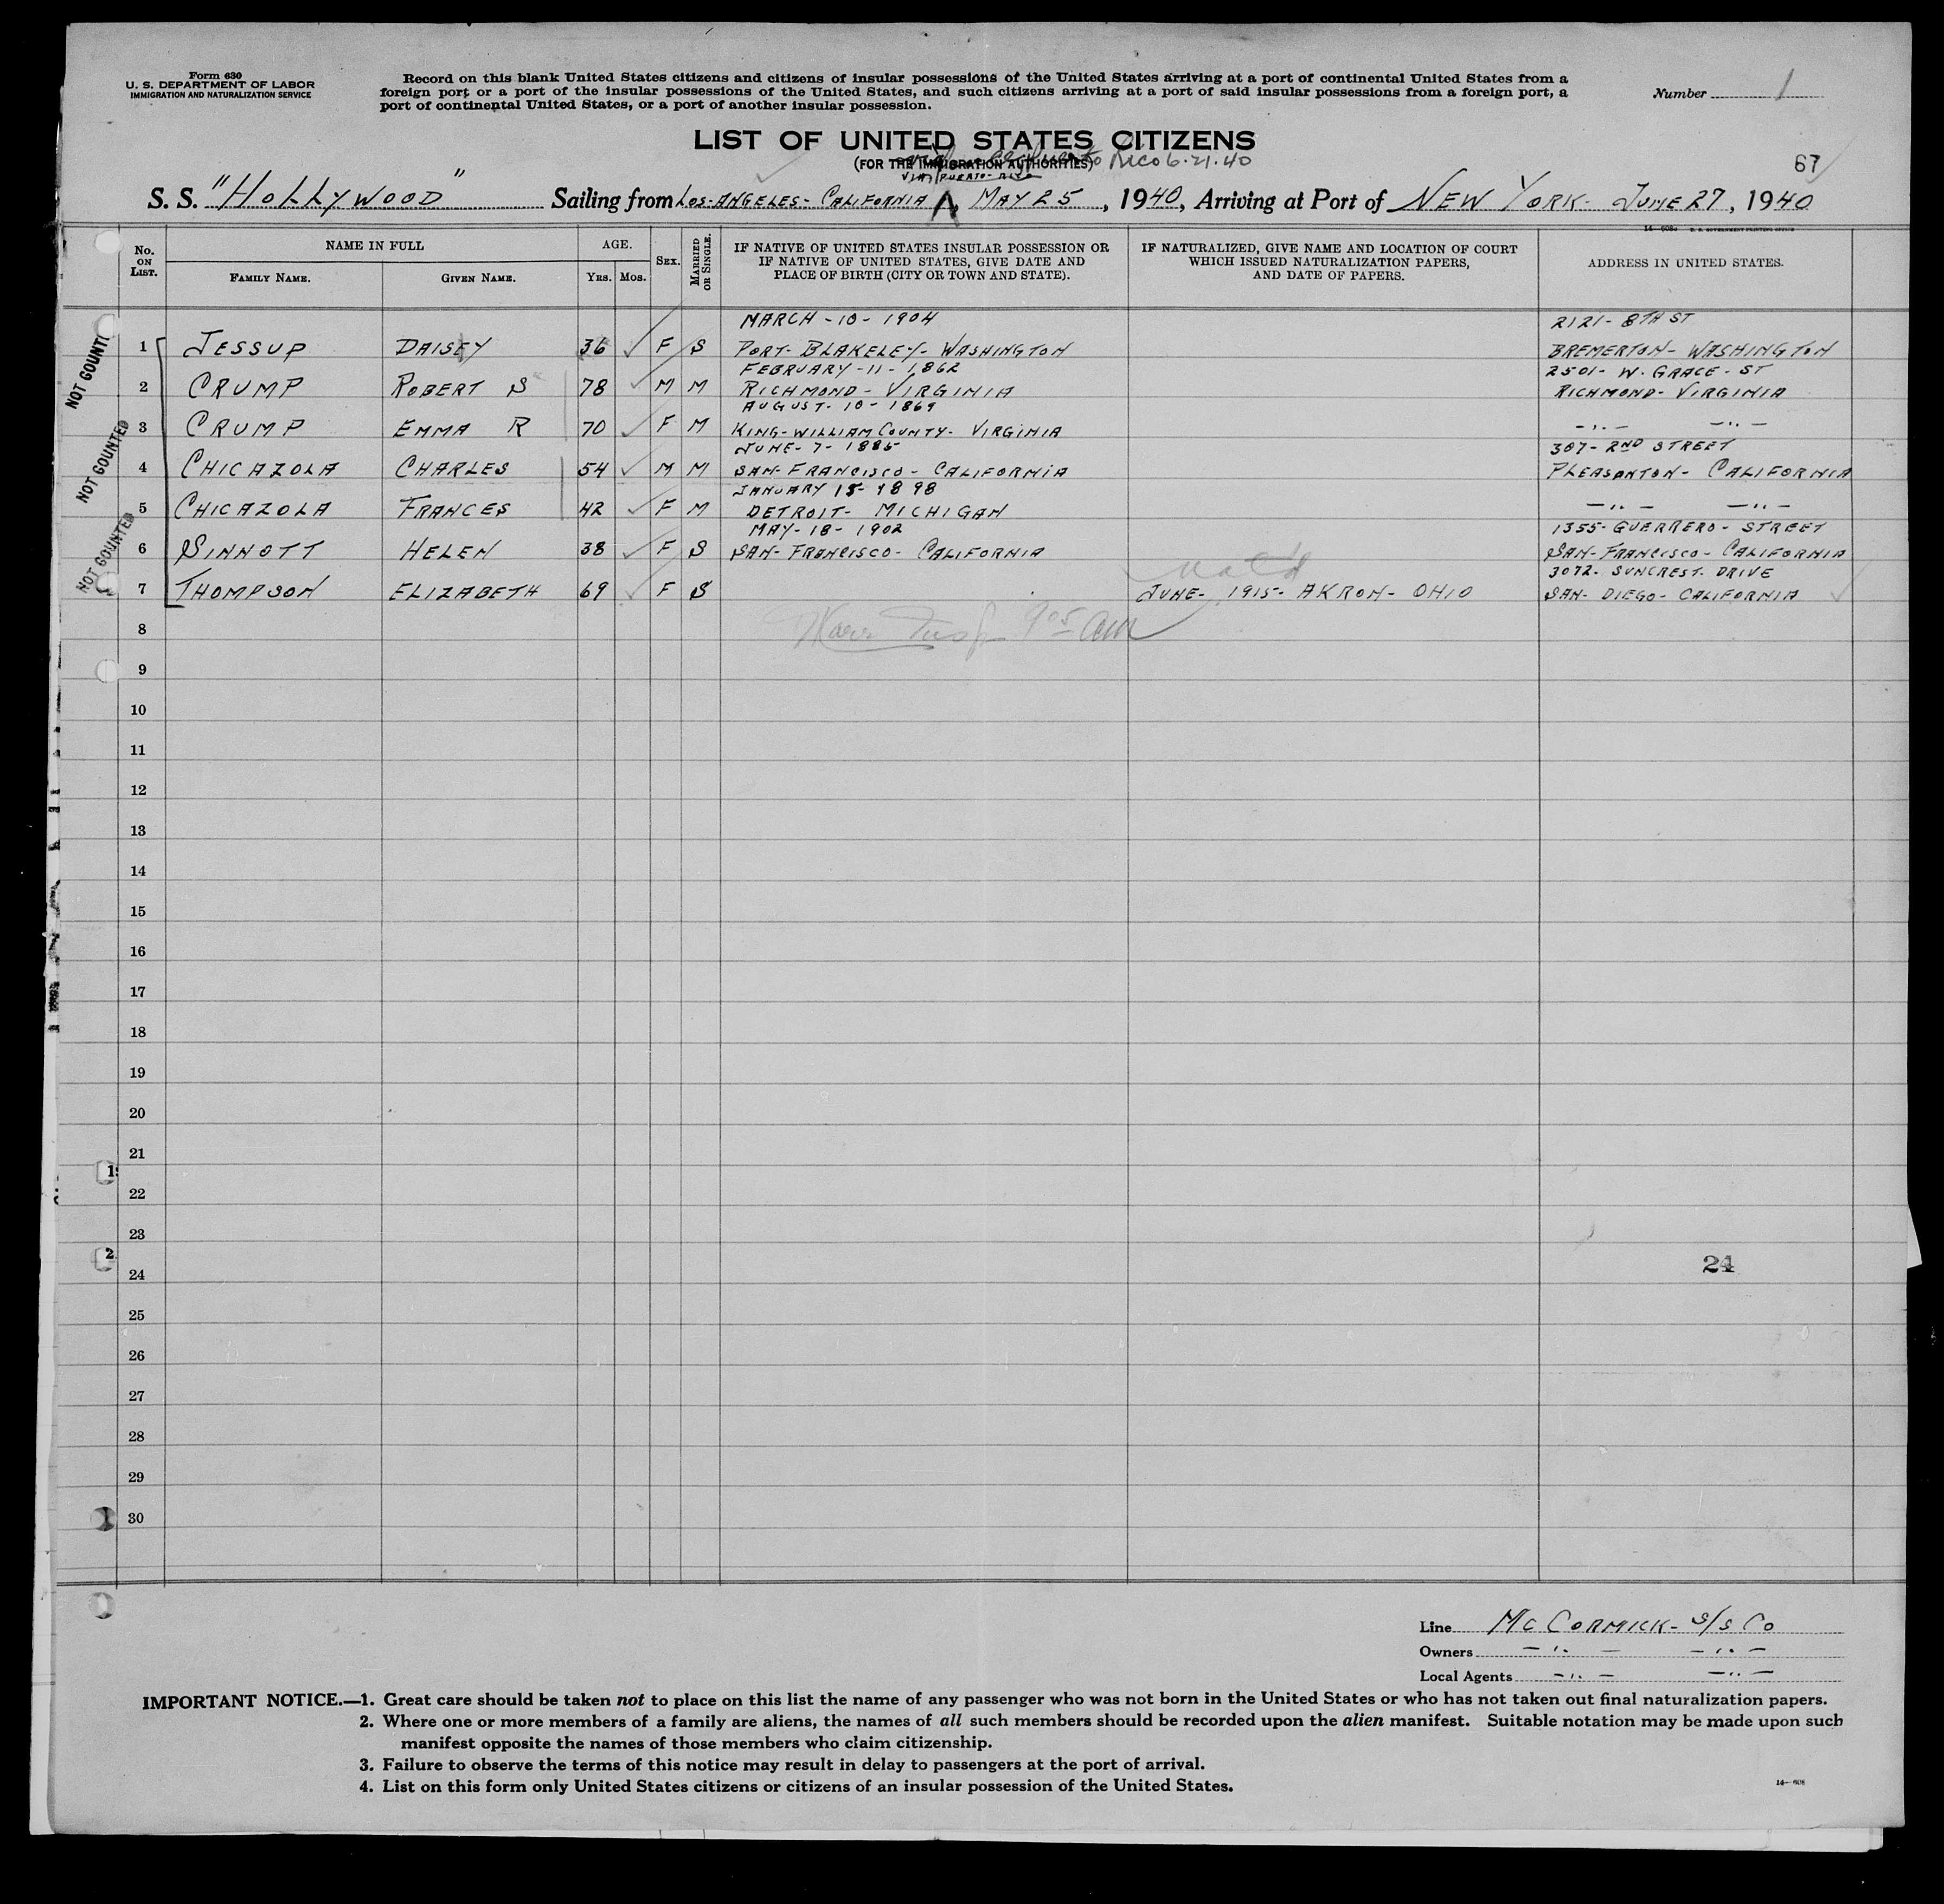 Form 630
U. S. DEPARTMENT OF LABOR
IMMIGRATION AND NATURALIZATION SERVICE
Record on this blank United States citizens and citizens of insular possessions of the United States arriving at a port of continental United States from a
foreign port or a port of the insular possessions of the United States, and such citizens arriving at a port of said insular possessions from a foreign port, a
port of continental United States, or a port of another insular possession.
Number 1
LIST OF UNITED STATES CITIZENS
(FOR THE IMMIGRATION AUTHORITIES)
Puerto Rico 6·21·40
VIA PUERTO-RICO
67
S. S. "HOLLYWOOD" Sailing from LOS-ANGELES- CALIFORNIA, MAY 25, 1940, Arriving at Port of NEW YORK- JUNE 27, 1940
No. ON LIST. NAME IN FULL FAMILY NAME. GIVEN NAME. AGE. YRS. MOS. SEX. MARRIED OR SINGLE.
IF NATIVE OF UNITED STATES INSULAR POSSESSION OR
IF NATIVE OF UNITED STATES, GIVE DATE AND
PLACE OF BIRTH (CITY OR TOWN AND STATE).
IF NATURALIZED, GIVE NAME AND LOCATION OF COURT
WHICH ISSUED NATURALIZATION PAPERS,
AND DATE OF PAPERS.
ADDRESS IN UNITED STATES.
MARCH-10-1904 2121- 8TH ST
1 JESSUP DAISY 36 F S PORT- BLAKELEY- WASHINGTON BREMERTON- WASHINGTON
FEBRUARY-11-1862 2501- W. GRACE- ST
2 CRUMP ROBERT S 78 M M RICHMOND- VIRGINIA RICHMOND- VIRGINIA
AUGUST-10-1869
3 CRUMP EMMA R 70 F M KING-WILLIAM COUNTY- VIRGINIA -"- -"-
JUNE-7-1885 307- 2ND STREET
4 CHICAZOLA CHARLES 54 M M SAN-FRANCISCO- CALIFORNIA PLEASANTON- CALIFORNIA
JANUARY 15-1898
5 CHICAZOLA FRANCES 42 F M DETROIT- MICHIGAN -"- -"-
MAY-18-1902 1355- GUERRERO- STREET
6 SINNOTT HELEN 38 F S SAN-FRANCISCO- CALIFORNIA SAN-FRANCISCO- CALIFORNIA
3072- SUNCREST- DRIVE
7 THOMPSON ELIZABETH 69 F S JUNE- 1915- AKRON- OHIO SAN-DIEGO- CALIFORNIA
NOT COUNT
NOT COUNTED
NOT COUNTED
905 am
8
9
10
11
12
13
14
15
16
17
18
19
20
21
22
23
24
24
25
26
27
28
29
30
Line McCORMICK- S/S Co
Owners -"- -"-
Local Agents -"- -"-
IMPORTANT NOTICE.—1. Great care should be taken not to place on this list the name of any passenger who was not born in the United States or who has not taken out final naturalization papers.
2. Where one or more members of a family are aliens, the names of all such members should be recorded upon the alien manifest. Suitable notation may be made upon such
manifest opposite the names of those members who claim citizenship.
3. Failure to observe the terms of this notice may result in delay to passengers at the port of arrival.
4. List on this form only United States citizens or citizens of an insular possession of the United States.